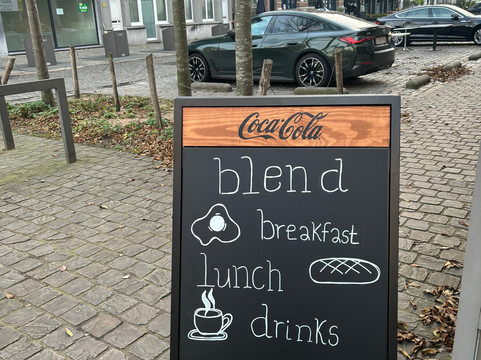 Coca-Cola
blend
breakfast
lunch
drinks